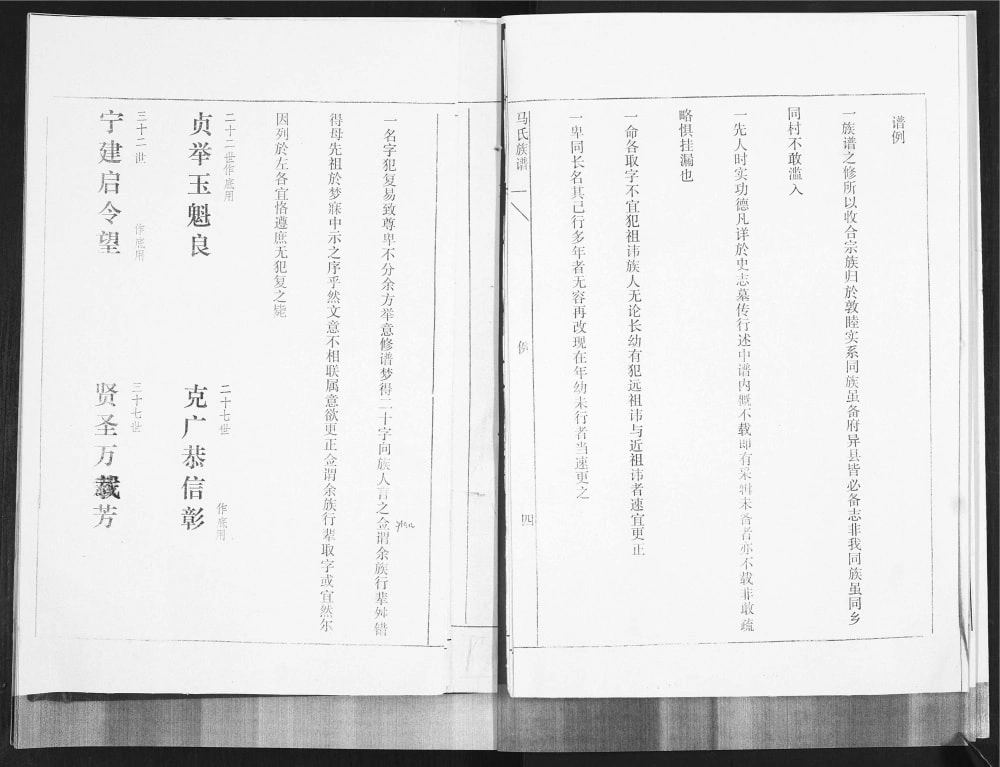 谱例
一族谱之修所以收合宗族归於敦睦实系同族虽备府异县皆必备志非我同族虽同乡
同村不敢滥入
一先人时实功德凡详於史志墓传行述中谱内概不载即有采辑未备者亦不载非敢疏
略惧挂漏也
一命各取字不宜犯祖讳族人无论长幼有犯远祖讳与近祖讳者速宜更正
一卑同长名其己行多年者无容再改现在年幼未行者当速更之
马氏族谱
例
四
一名字犯复易致尊卑不分余方举意修谱梦得二十字向族人言之佥谓余族行辈舛错
得母先祖於梦寐中示之序乎然文意不相联属意欲更正佥谓余族行辈取字或宜然尔
因列於左各宜恪遵庶无犯复之毙
二十二世作底用
贞举玉魁良
二十七世
作底用
克广恭信彰
三十二世
作底用
宁建启令望
三十七世
贤圣万载芳